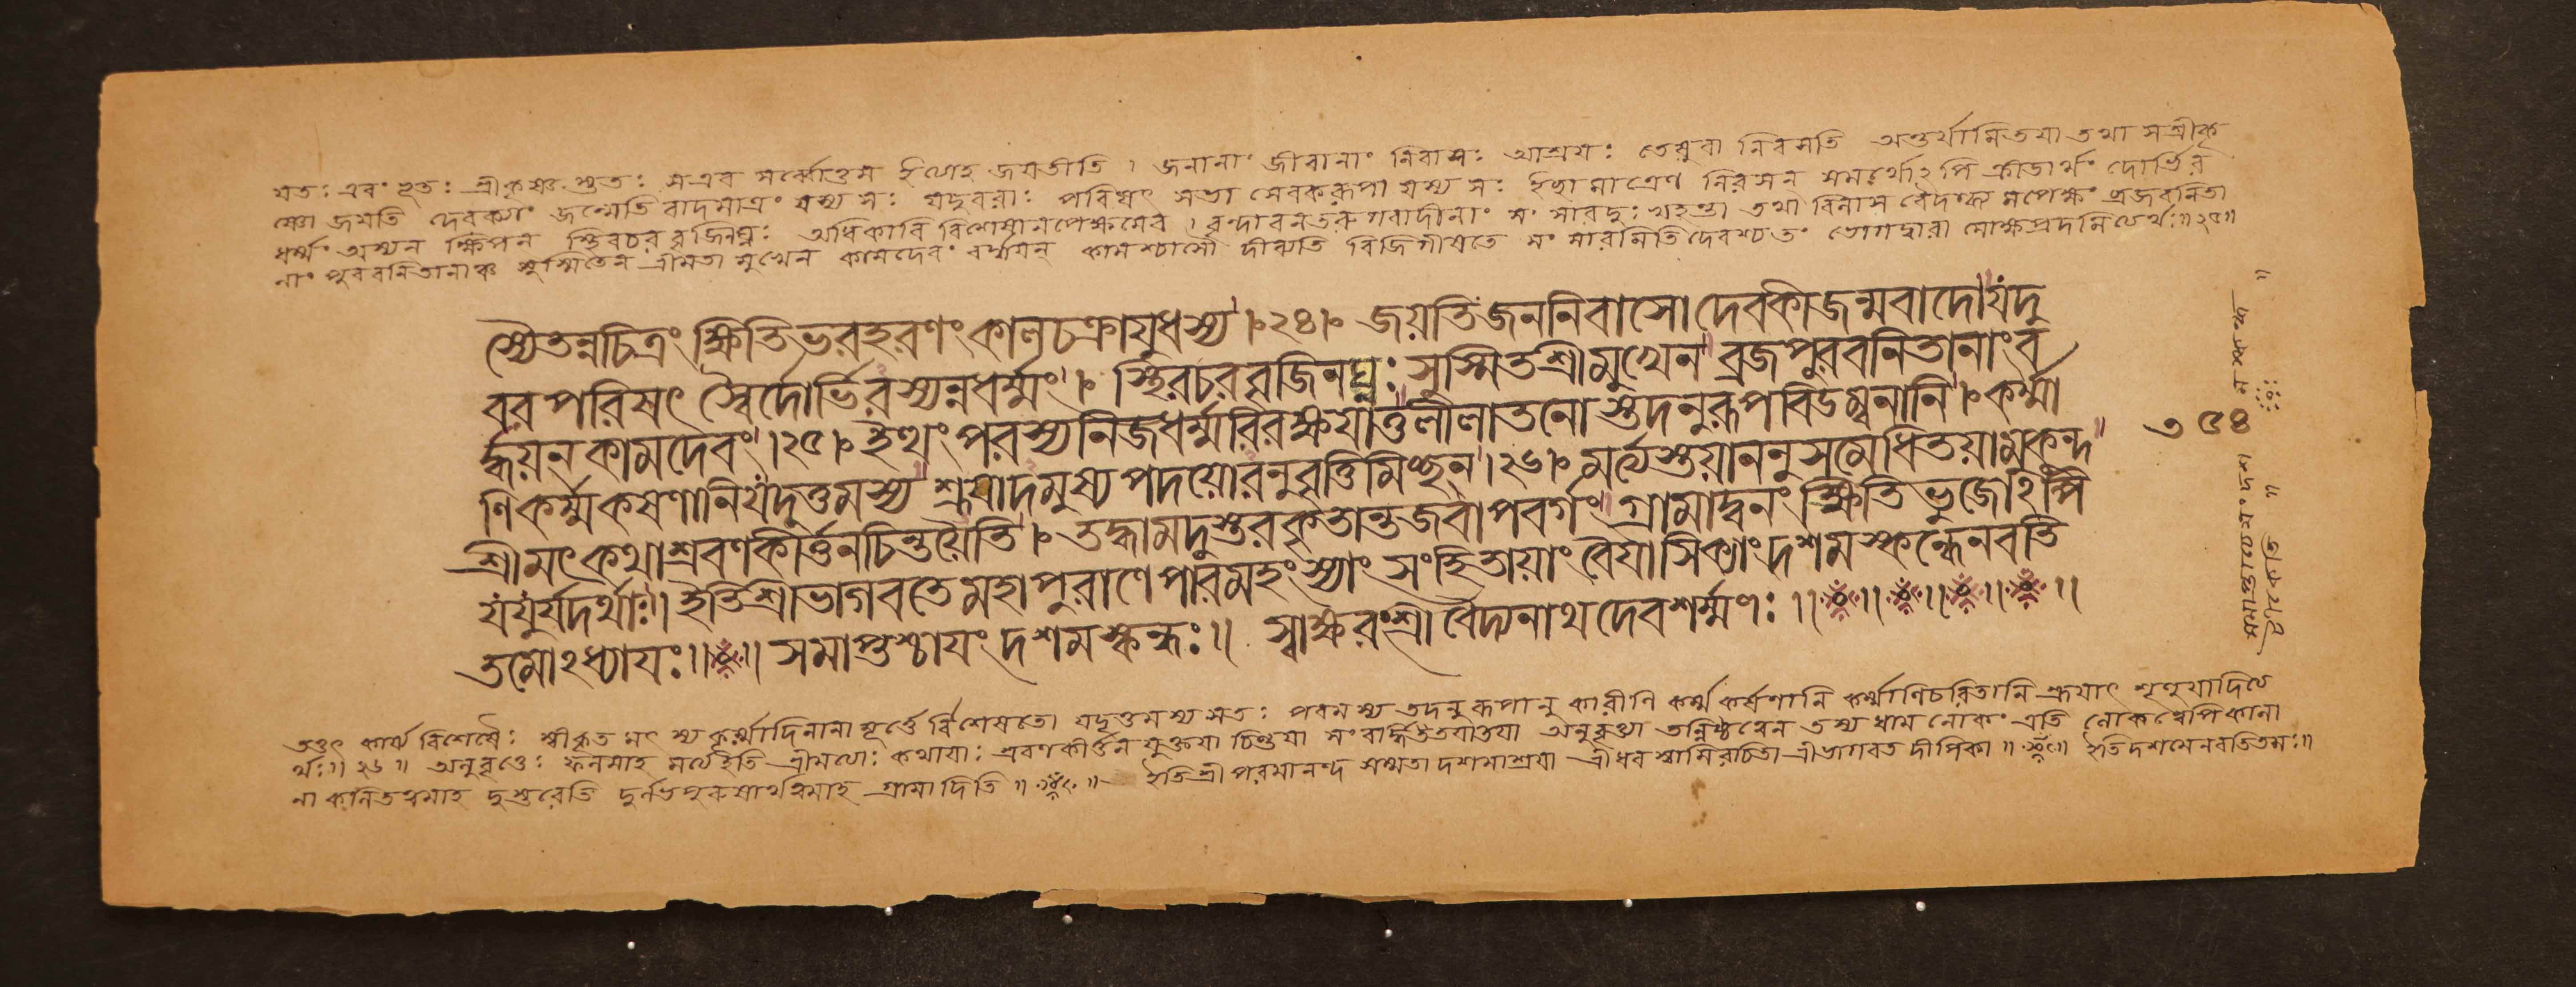 যতঃ এবং ভূতঃ শ্রীকৃষ্ণস্ততঃ স এব সর্ব্বোত্তম ইত্যাহ জয়তীতি । জনানাং জীবানাং নিবাসঃ আশ্রয়ঃ তেষু বা নিবসতি অন্তর্যামিতয়া তথা স শ্রীকৃ
ষ্ণো জয়তি দেবক্যাং জন্মেতি বাদমাত্রং যস্য সঃ যদুবরাঃ পরিষৎ সভা সেবকরূপা যস্য সঃ ইচ্ছামাত্রেণ নিরসন সমর্থোঽপি ক্রীডার্থং দোর্ভির
ধর্ম্মং অস্যন্ ক্ষিপন্ স্থিরচরবৃজিনঘ্নঃ অধিকারি বিশেষানপেক্ষমেব । বৃন্দাবনতরু গবাদীনাং সংসারদুঃখহন্তা তথা বিলাস বৈদগ্ধ্যানপেক্ষং ব্রজবনিতা
নাং পুরবনিতানাঞ্চ সুস্মিতেন শ্রীমতা মুখেন কামদেবং বর্দ্ধয়ন্ কামশ্চাসৌ দীব্যতি বিজিগীষতে সংসারমিতি দেবশ্চ তং ভোগদ্বারা মোক্ষপ্রদমিত্যর্থঃ॥২৫॥
স্যৈতন্নচিত্রং ক্ষিতিভরহরণং কালচক্রায়ুধস্য ।২৪। জয়তি জননিবাসো দেবকীজন্মবাদো যদু
বরপরিষৎ স্বৈর্দোর্ভিরস্যন্নধর্ম্মং । স্থিরচরবৃজিনঘ্নঃ সুস্মিতশ্রীমুখেন ব্রজপুরবনিতানাং ব
র্দ্ধয়ন কামদেবং ।২৫। ইত্থং পরস্য নিজধর্ম্মরিরক্ষয়াত্তলীলাতনোস্তদনুরূপবিডম্বনানি । কর্ম্মা
ণি কর্ম্মকষণানি যদুত্তমস্য শ্রূয়াদমুষ্য পদয়োরনুবৃত্তিমিচ্ছন ।২৬। মর্ত্ত্যস্তয়াননুসমেধিতয়া মুকুন্দ
শ্রীমৎকথাশ্রবণকীর্ত্তনচিন্তয়ৈতি । তদ্ধামদুস্তরকৃতান্তজবাপবর্গং গ্রামাদ্বনং ক্ষিতিভুজোঽপি
যযুর্যদর্থাঃ॥ ইতি শ্রীভাগবতে মহাপুরাণে পারমহংস্যাং সংহিতায়াং বৈয়াসিক্যাং দশমস্কন্ধে নবতি
তমোঽধ্যায়ঃ॥ ॥ সমাপ্তশ্চায়ং দশমস্কন্ধঃ॥ স্বাক্ষরং শ্রী বৈদ্যনাথ দেবশর্ম্মণঃ ॥ ॥ ॥ ॥ ॥
তত্তৎ কার্য্য বিশেষৈঃ স্বীকৃত মৎস্যকূর্ম্মাদিনানামূর্ত্তের্বিশেষতো যদুত্তমস্য সতঃ পরমস্য তদনুরূপানুকারীণি কর্ম্মকর্ষণানি কর্ম্মাণি চরিতানি শ্রূয়াৎ শৃণুয়াদিত্য
র্থঃ॥২৬॥ অনুবৃত্তেঃ ফলমাহ মর্ত্ত্য ইতি শ্রীমত্যোঃ কথায়াঃ শ্রবণকীর্ত্তন যুক্তয়া চিন্তয়া সংবর্দ্ধিতয়া অনুবৃত্ত্যা তন্নিষ্ঠত্বেন তস্য ধাম লোকং এতি লোকত্বেপি কালা
নাকলিতত্বমাহ দুস্তরেতি দুর্লভপুরুষার্থত্বমাহ গ্রামাদিতি ॥ ॥ ইতি শ্রী পরমানন্দ সম্মতা দশমাশ্রয়া শ্রীধর স্বামিরচিতা শ্রীভাগবত দীপিকা ॥ ॥ ইতি দশমে নবতিতমঃ॥
৩৫৪